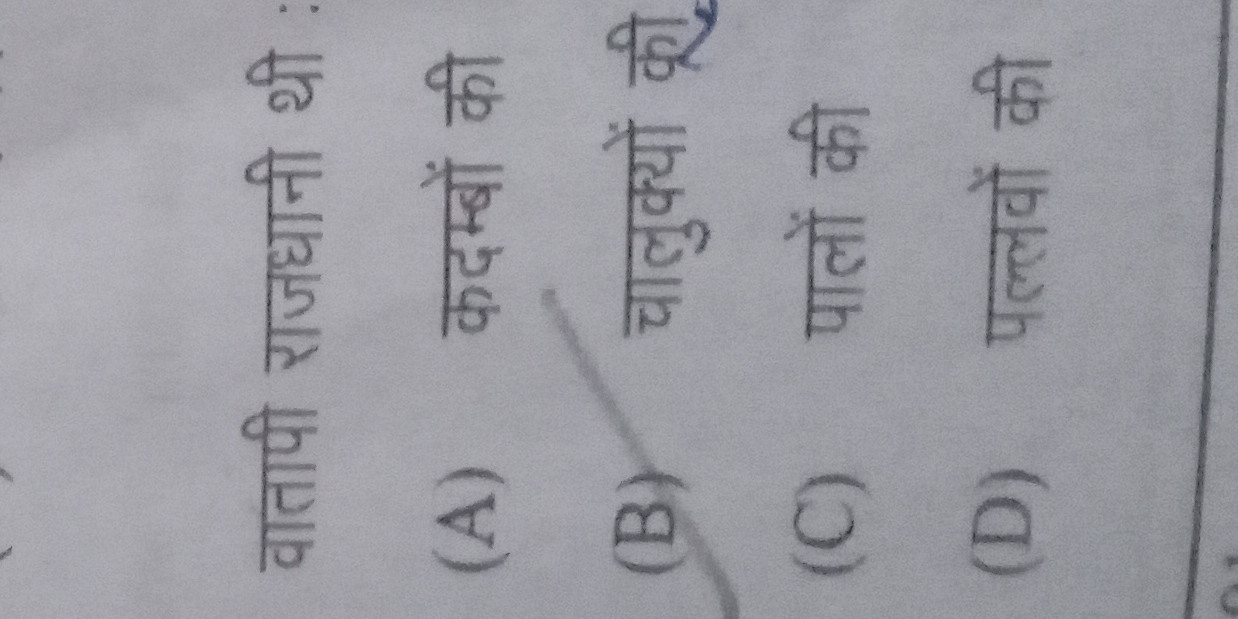 वातापी राजधानी थी :
(A) कदम्बों की
(B) चालुक्यों की
(C) पालों की
(D) पल्लवों की